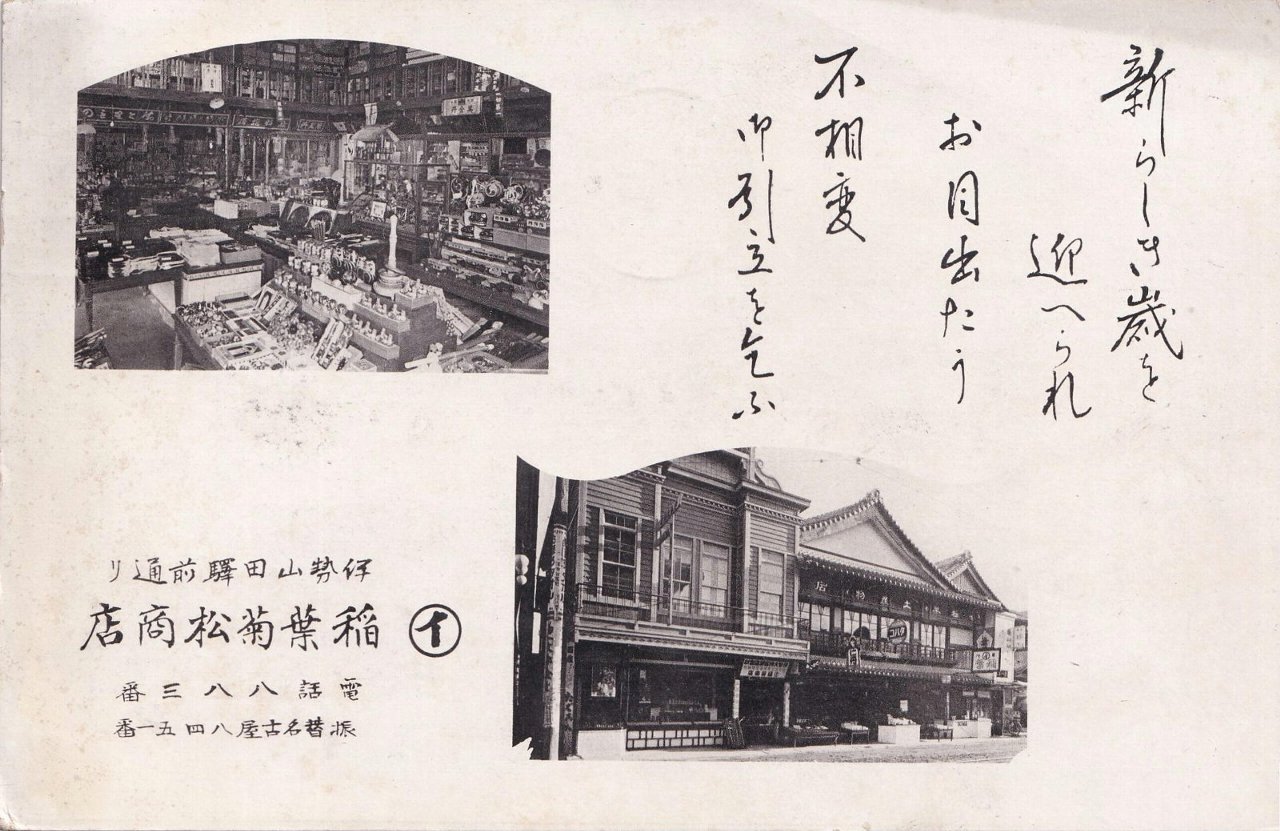 新らしき歳を
迎へられ
お目出たう
不相変
御引立を乞ふ
伊勢山田驛前通り
イ 稲葉菊松商店
電話八八三番
振替名古屋八四五一番